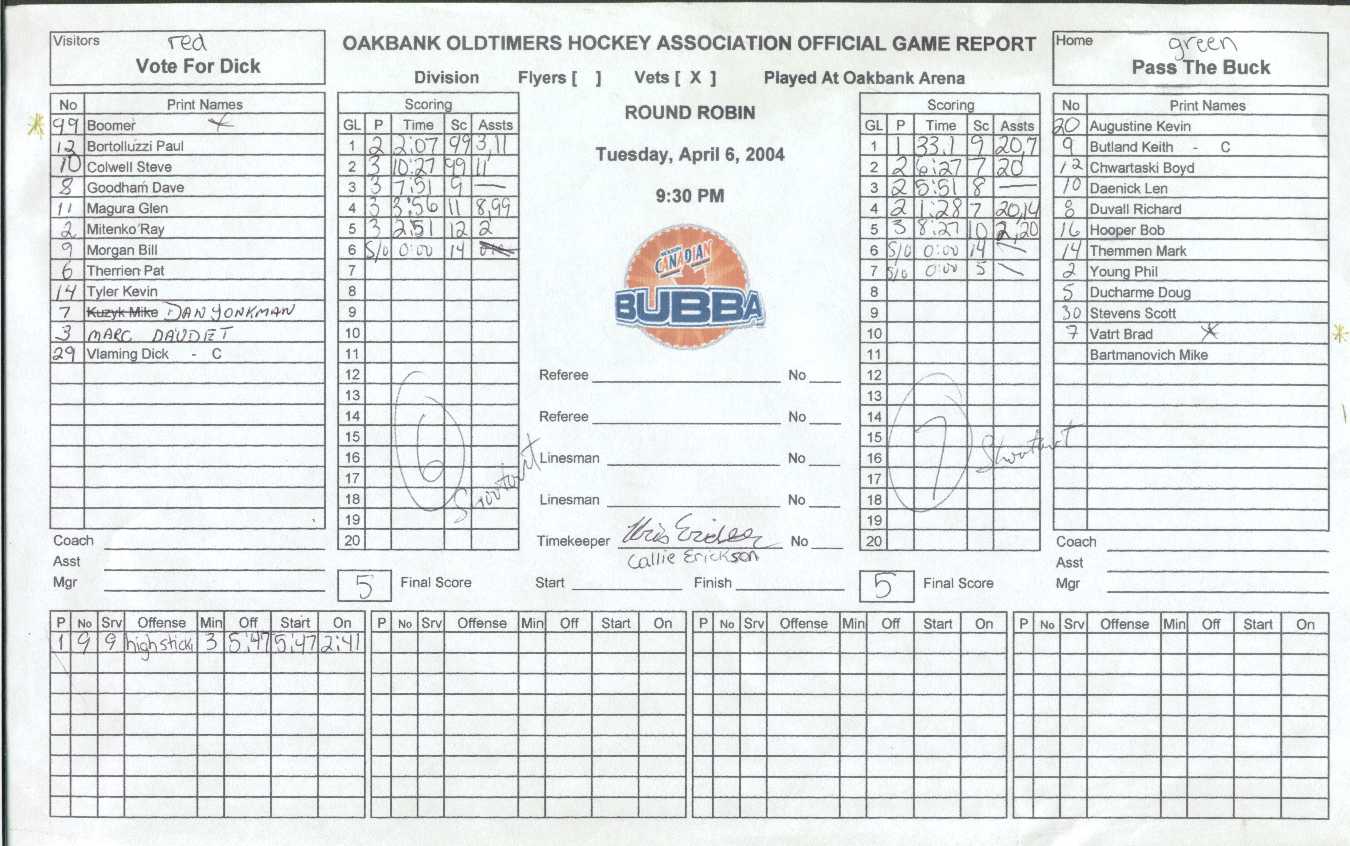 Visitors red
Vote For Dick
OAKBANK OLDTIMERS HOCKEY ASSOCIATION OFFICIAL GAME REPORT
Division Flyers [ ] Vets [ X ] Played At Oakbank Arena
Home green
Pass The Buck
ROUND ROBIN
Tuesday, April 6, 2004
9:30 PM
No Print Names
99 Boomer
12 Bortoluzzi Paul
10 Colwell Steve
8 Goodham Dave
11 Magura Glen
2 Mitenko Ray
9 Morgan Bill
6 Therrien Pat
14 Tyler Kevin
7 Kuzyk Mike DAN YONKMAN
3 MARC DAUDET
29 Vlaming Dick - C
Scoring
GL P Time Sc Assts
1 2 2:07 99 3,11
2 3 10:27 99 11
3 3 7:51 9 —
4 3 3:56 11 8,99
5 3 2:51 12 2
6 S/O 0:00 14
7
8
9
10
11
12
13
14
15
16
17
18
19
20
6 Shootout
CANADIAN
BUBBA
Referee No
Referee No
Linesman No
Linesman No
Timekeeper No
Callie Erickson
Start Finish
Scoring
GL P Time Sc Assts
1 1 33.1 9 20,7
2 2 6:27 7 20
3 2 5:51 8 —
4 2 1:28 7 20,14
5 3 8:27 10 2,20
6 S/O 0:00 14
7 S/O 0:00 5
8
9
10
11
12
13
14
15
16
17
18
19
20
7 Shootout
No Print Names
20 Augustine Kevin
9 Butland Keith - C
12 Chwartaski Boyd
10 Daenick Len
8 Duvall Richard
16 Hooper Bob
14 Themmen Mark
2 Young Phil
5 Ducharme Doug
30 Stevens Scott
7 Vatrt Brad
Bartmanovich Mike
Coach
Asst
Mgr
5 Final Score
5 Final Score
Coach
Asst
Mgr
P No Srv Offense Min Off Start On
1 9 9 high stick 3 5:47 5:47 2:41
P No Srv Offense Min Off Start On
P No Srv Offense Min Off Start On
P No Srv Offense Min Off Start On